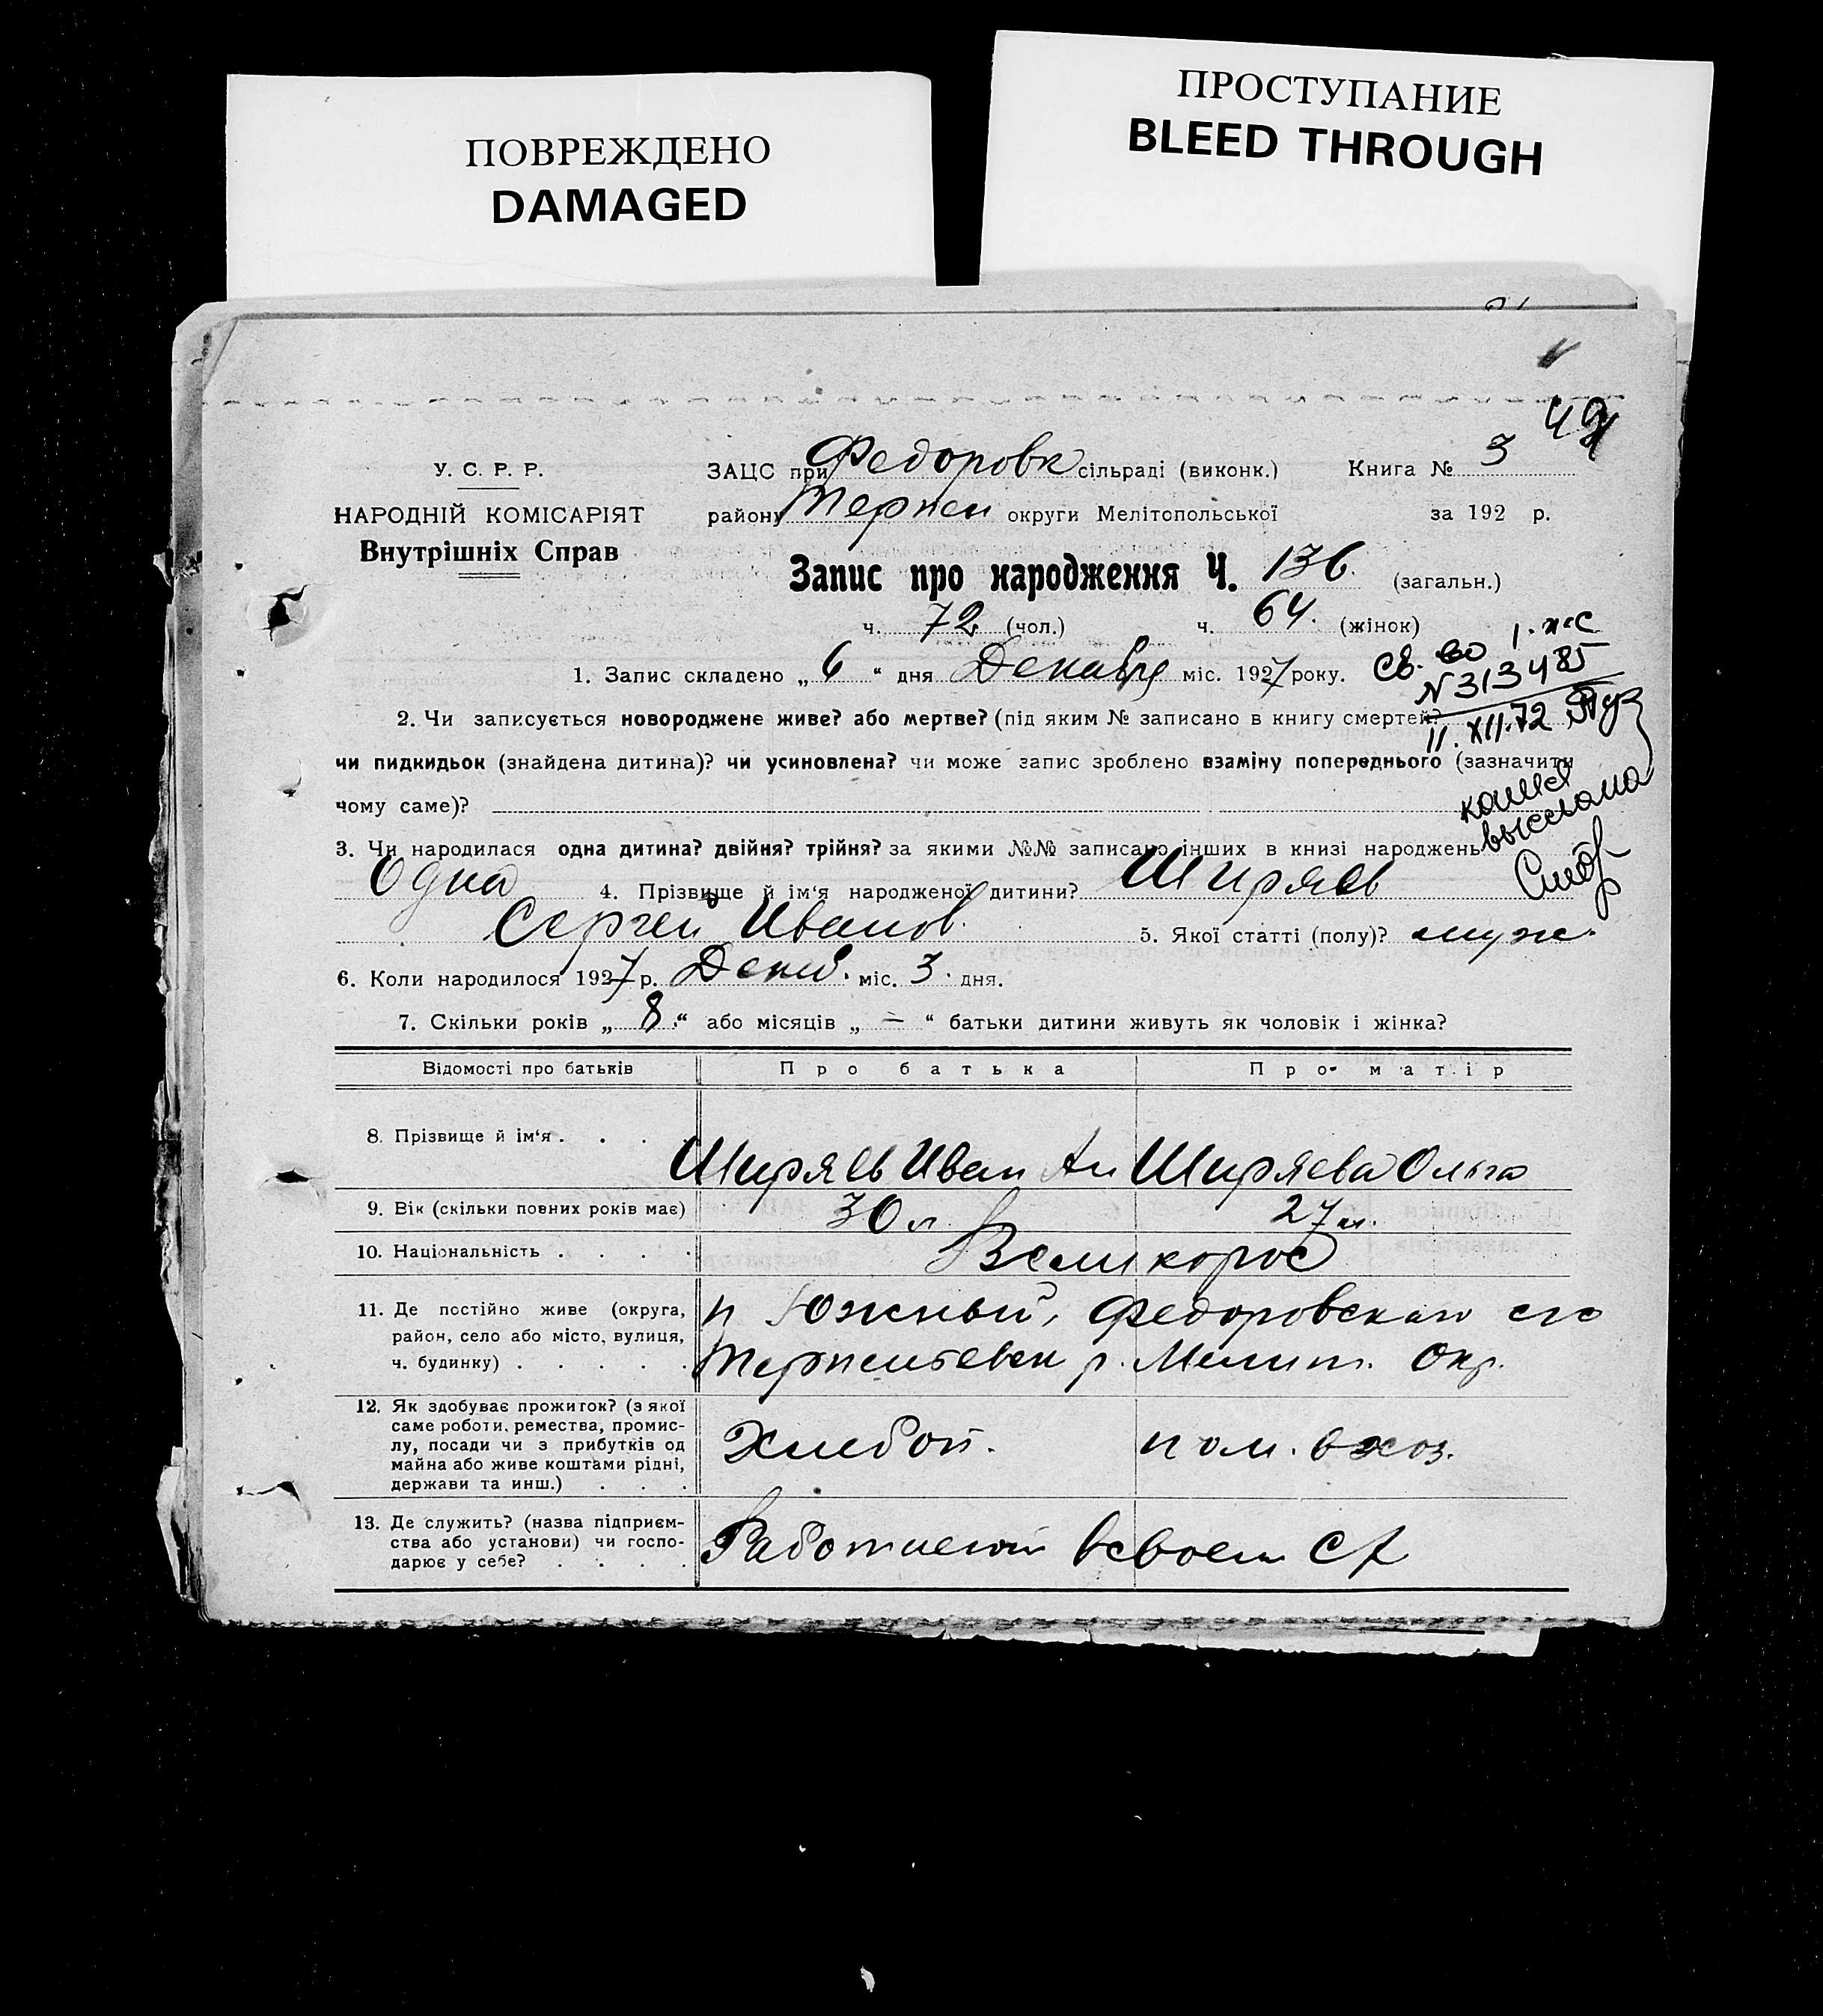 ПОВРЕЖДЕНО
DAMAGED
ПРОСТУПАНИЕ
BLEED THROUGH
У. С. Р. Р.
НАРОДНІЙ КОМІСАРІЯТ
Внутрішніх Справ
ЗАЦС при Федоровк сільраді (виконк.) Книга № 3
району Терпен округи Мелітопольської за 192 р.
Запис про народження Ч. 136. (загальн.)
ч. 72 (чол.) ч. 64. (жінок)
1. Запис складено „ 6 “ дня Декабря міс. 1927 року.
Св. во 1. жс
N 313485
11.XII.72
копия
выслана
2. Чи записується новороджене живе? або мертве? (під яким № записано в книгу смертей?
чи пидкидьок (знайдена дитина)? чи усиновлена? чи може запис зроблено взаміну попереднього (зазначити
чому саме)?
3. Чи народилася одна дитина? двійня? трійня? за якими №№ записано інших в книзі народжень
Одна 4. Прізвище й ім‘я народженої дитини? Ширяев
Сергей Иванов. 5. Якої статті (полу)? муж.
6. Коли народилося 1927 р. Декаб. міс. 3. дня.
7. Скільки років „ 8. “ або місяців „ — “ батьки дитини живуть як чоловік і жінка?
Відомості про батьків Про батька Про матір
8. Прізвище й ім‘я . . . . Ширяев Иван Ан Ширяева Ольга
9. Вік (скільки повних років має) 30 л 27 л.
10. Національність . . . . Великорос
11. Де постійно живе (округа,
район, село або місто, вулиця,
ч. будинку) . . . . .
п Южный, Федоровскаго с/с
Терпеньевск р. Мелит. Окр.
12. Як здобуває прожиток? (з якої
саме роботи, ремества, промис-
лу, посади чи з прибутків од
майна або живе коштами рідні,
держави та инш.) . . .
Хлебоп. пом. в хоз.
13. Де служить? (назва підприєм-
ства або установи) чи госпо-
дарює у себе? . . . .
в своем